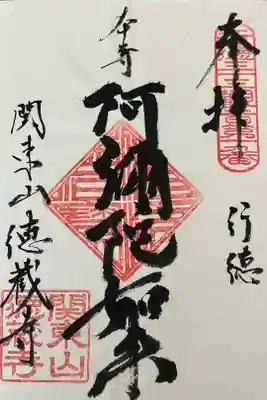 奉拝
行徳
本寺
阿彌陀如来
関東山徳蔵寺
関東山
徳蔵寺